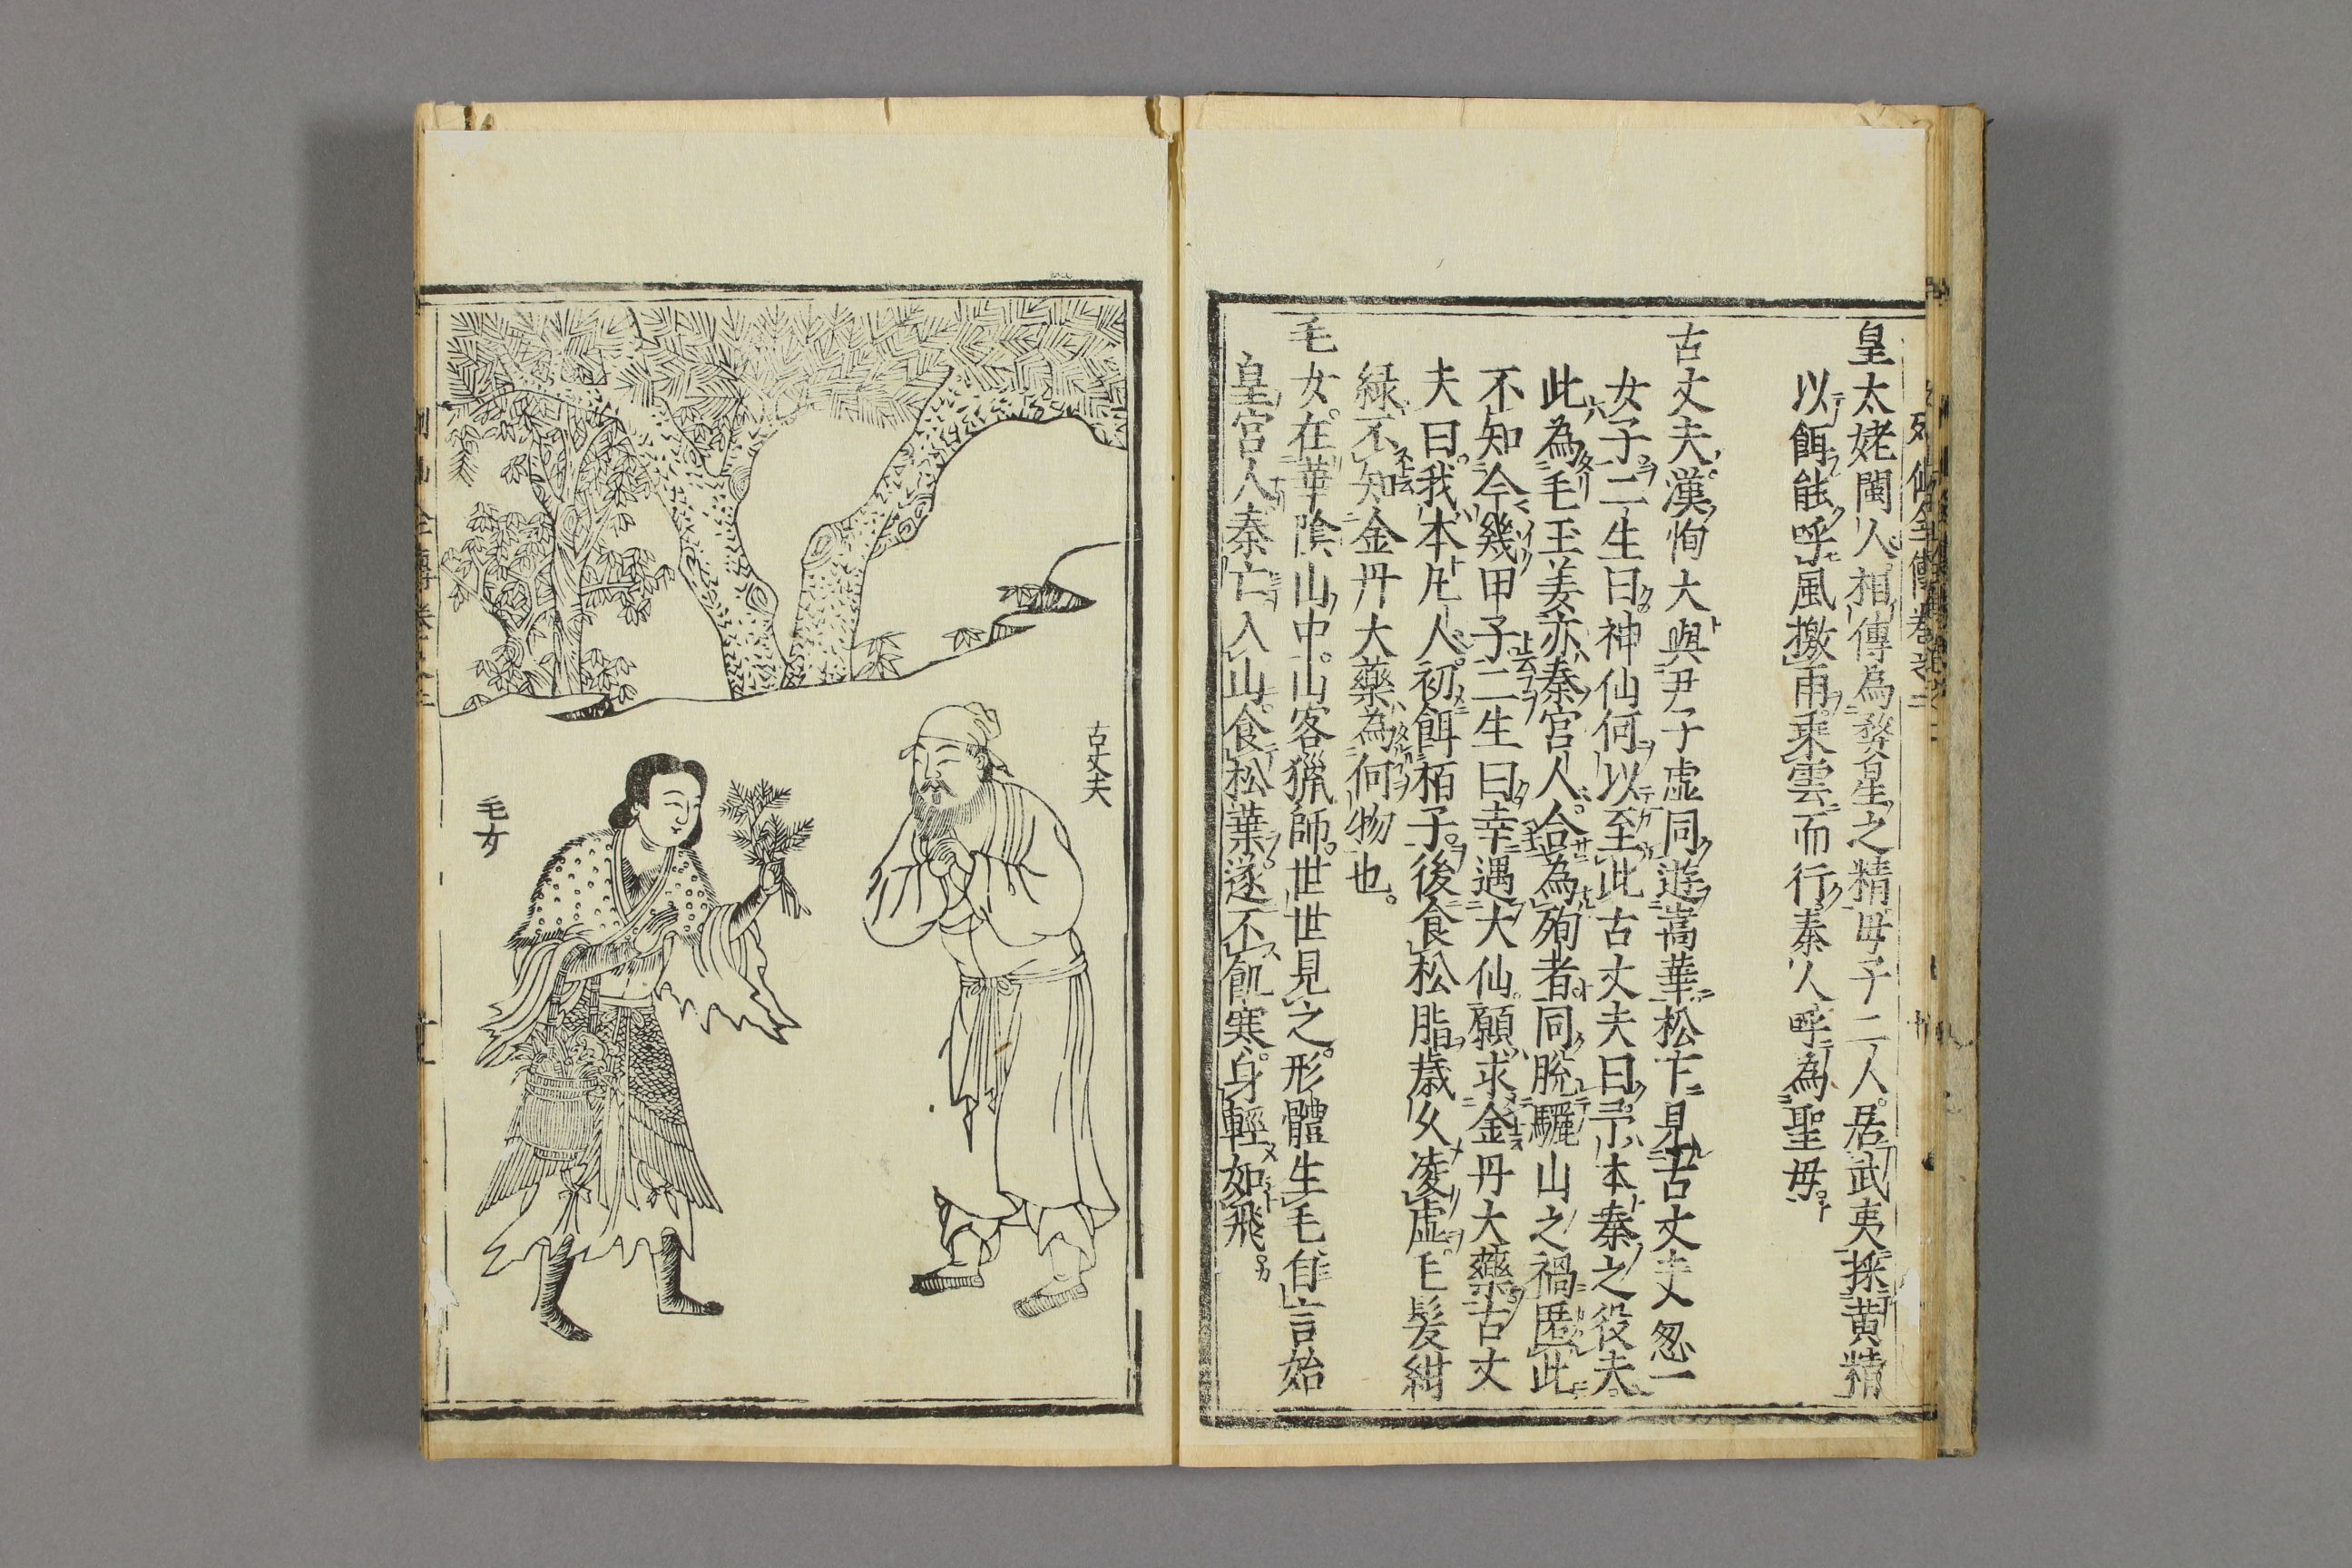 列仙全傳卷之二
皇太姥閩人相傳為婺星之精母子二人居武夷採黄精
以餌能呼風檄雨乗雲而行秦人呼為聖母
古丈夫漢恂大與尹子虚同遊嵩華松下見古丈夫丈忽一
女子二生曰神仙何以至此古丈夫曰予本秦之役夫
此為毛玉姜亦秦宮人合為殉者同脫驪山之禍匿此
不知今幾甲子二生曰幸遇大仙願求金丹大藥古丈
夫曰我本凡人初餌栢子後食松脂歳久凌虚毛髪紺
緑不知金丹大藥為何物也
毛女在華陰山中山客獵師世世見之形體生毛自言始
皇宮人秦亡入山食松葉遂不飢寒身輕如飛
古丈夫
毛女